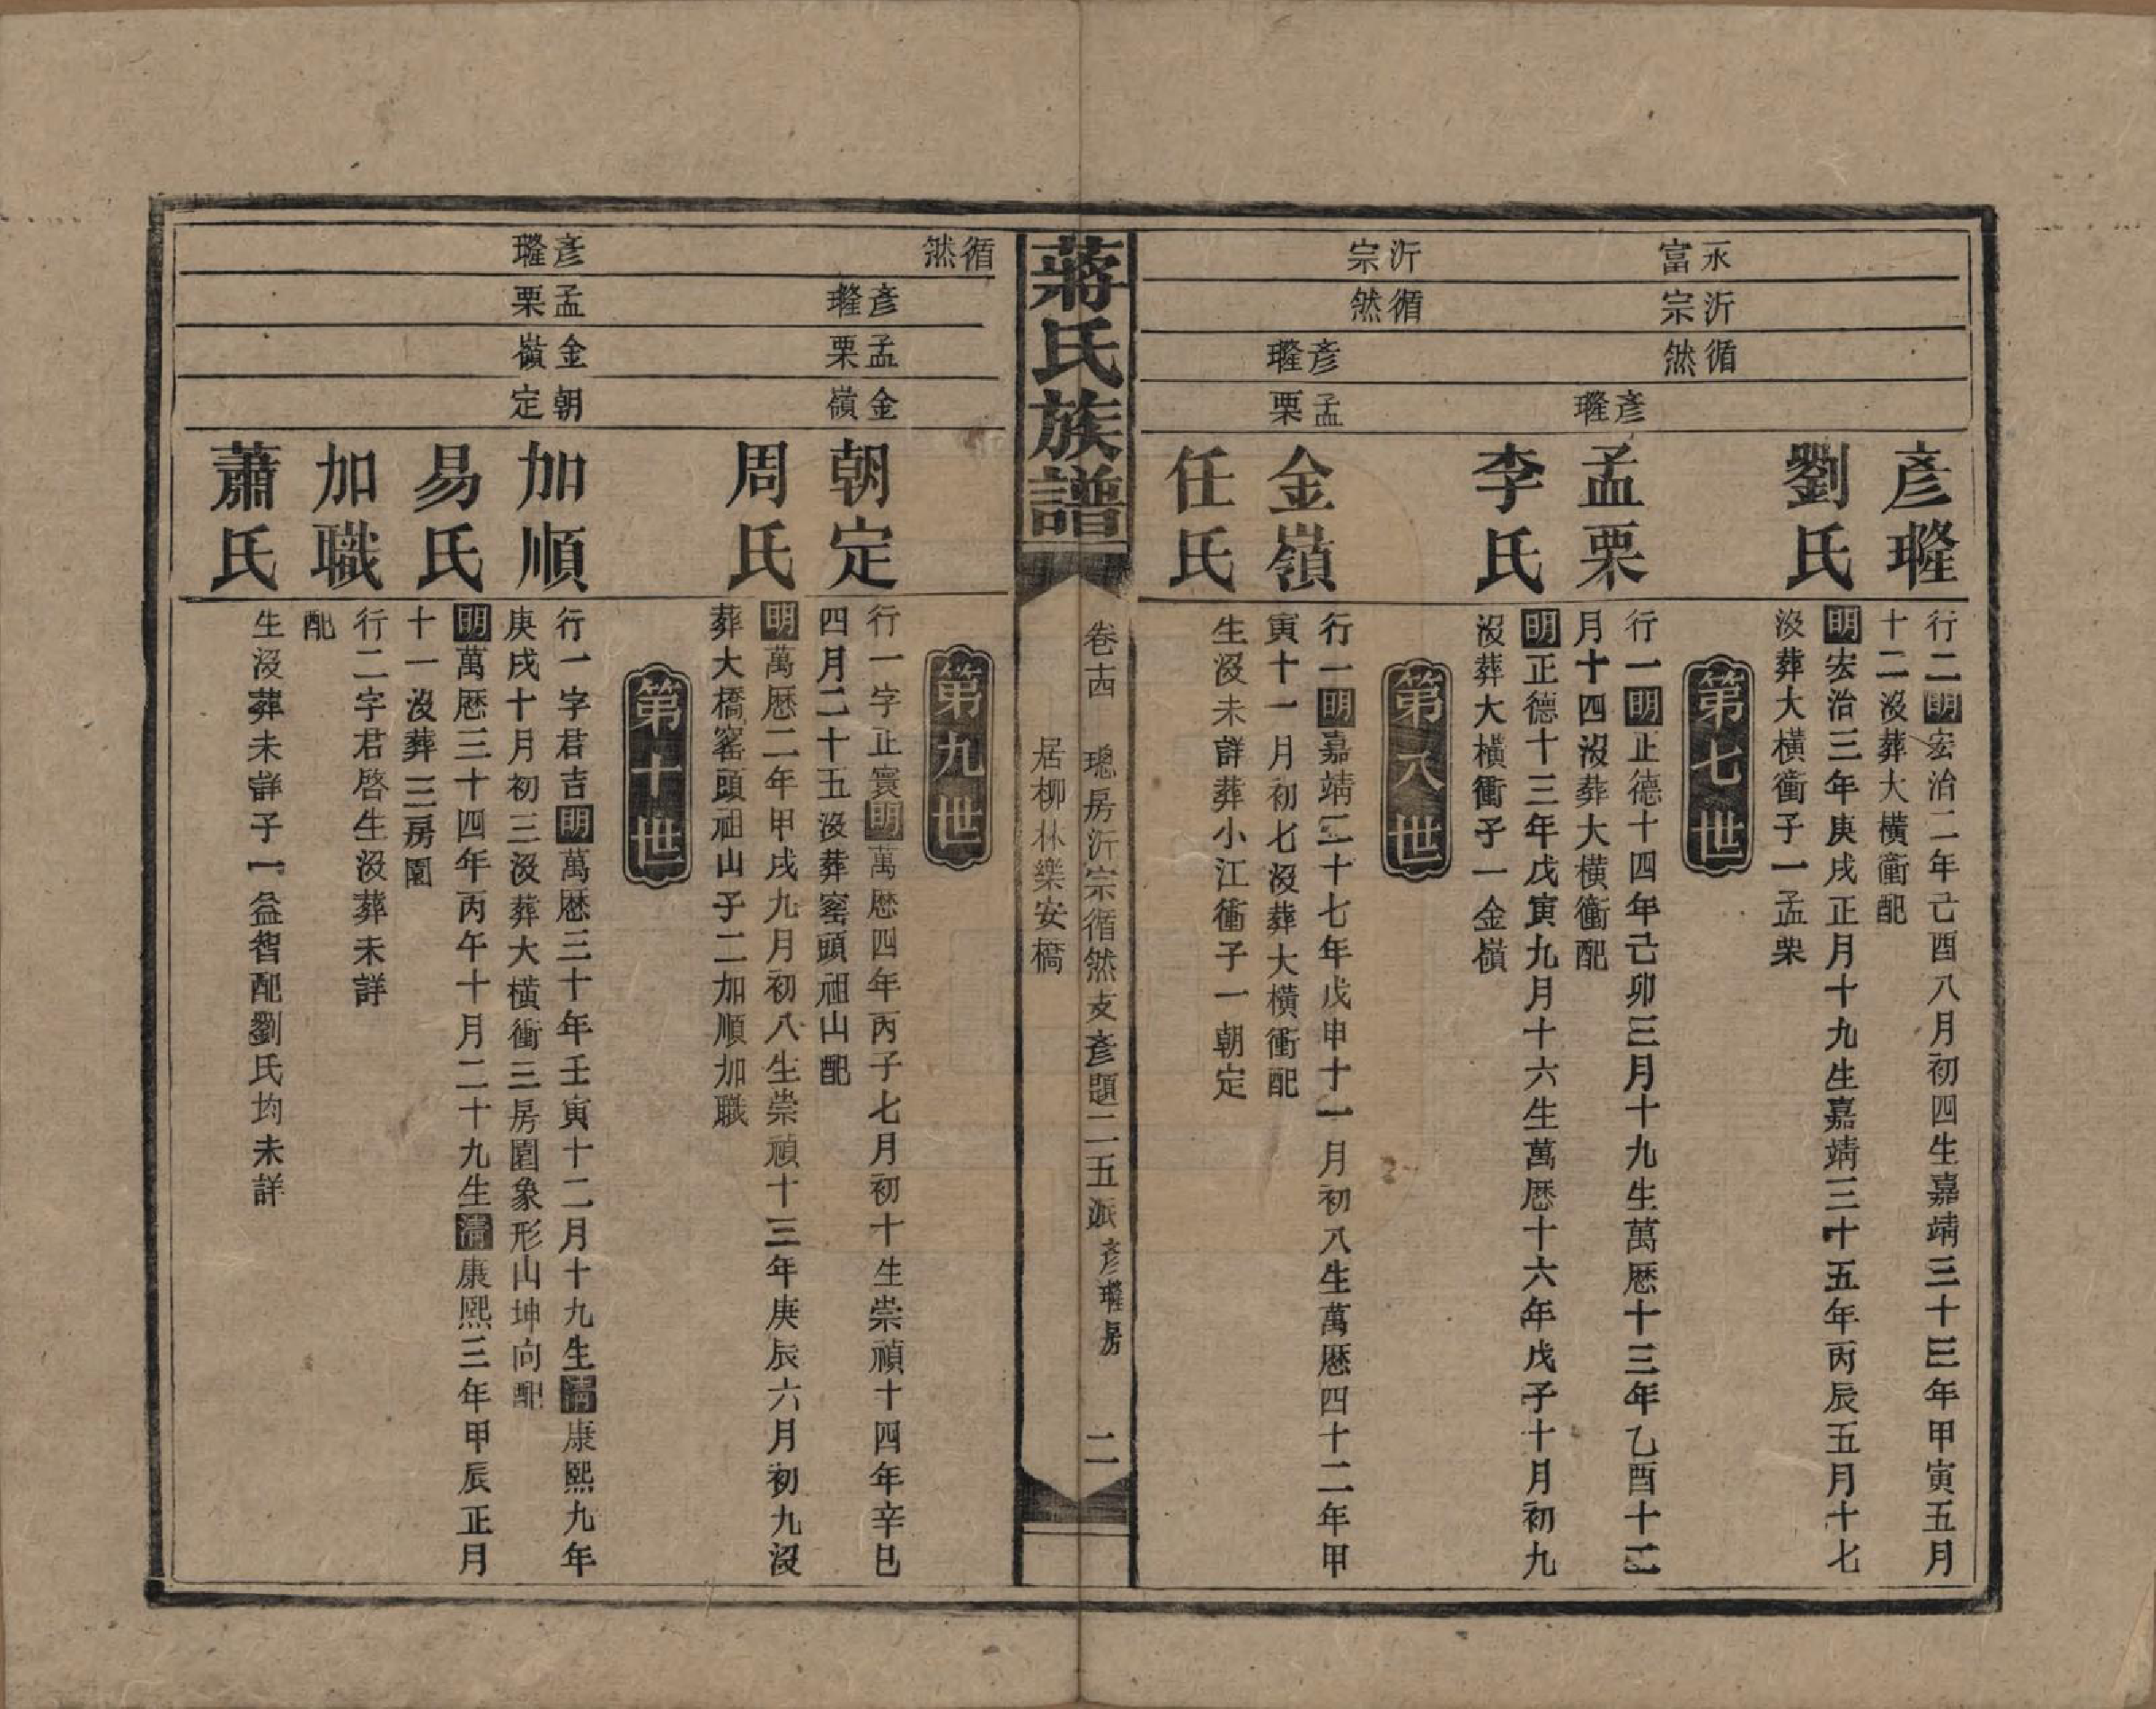 永富
沂宗
循然
彥𤩱
行二明宏治二年己酉八月初四生嘉靖三十三年甲寅五月
十二沒葬大橫衝配
劉氏
明宏治三年庚戌正月十九生嘉靖三十五年丙辰五月十七
沒葬大橫衝子一孟栗
第七世
彥𤩱
孟栗
行一明正德十四年己卯三月十九生萬歷十三年乙酉十二
月十四沒葬大橫衝配
李氏
明正德十三年戊寅九月十六生萬歷十六年戊子十月初九
沒葬大橫衝子一金嶺
第八世
沂宗
循然
彥𤩱
孟栗
金嶺
行一明嘉靖二十七年戊申十一月初八生萬歷四十二年甲
寅十一月初七沒葬大橫衝配
任氏
生沒未詳葬小江衝子一朝定
蔣氏族譜
卷十四
璁房沂宗循然支彥題二五派彥𤩱房
居柳林樂安橋
二
第九世
循然
彥𤩱
孟栗
金嶺
朝定
行一字正寰明萬歷四年丙子七月初十生崇禎十四年辛巳
四月二十五沒葬窰頭祖山配
周氏
明萬歷二年甲戌九月初八生崇禎十三年庚辰六月初九沒
葬大橋窰頭祖山子二加順加職
第十世
彥𤩱
孟栗
金嶺
朝定
加順
行一字君吉明萬歷三十年壬寅十二月十九生清康熙九年
庚戌十月初三沒葬大橫衝三房園象形山坤向配
易氏
明萬歷三十四年丙午十月二十九生清康熙三年甲辰正月
十一沒葬三房園
加職
行二字君啓生沒葬未詳
配
蕭氏
生沒葬未詳子一益智配劉氏均未詳